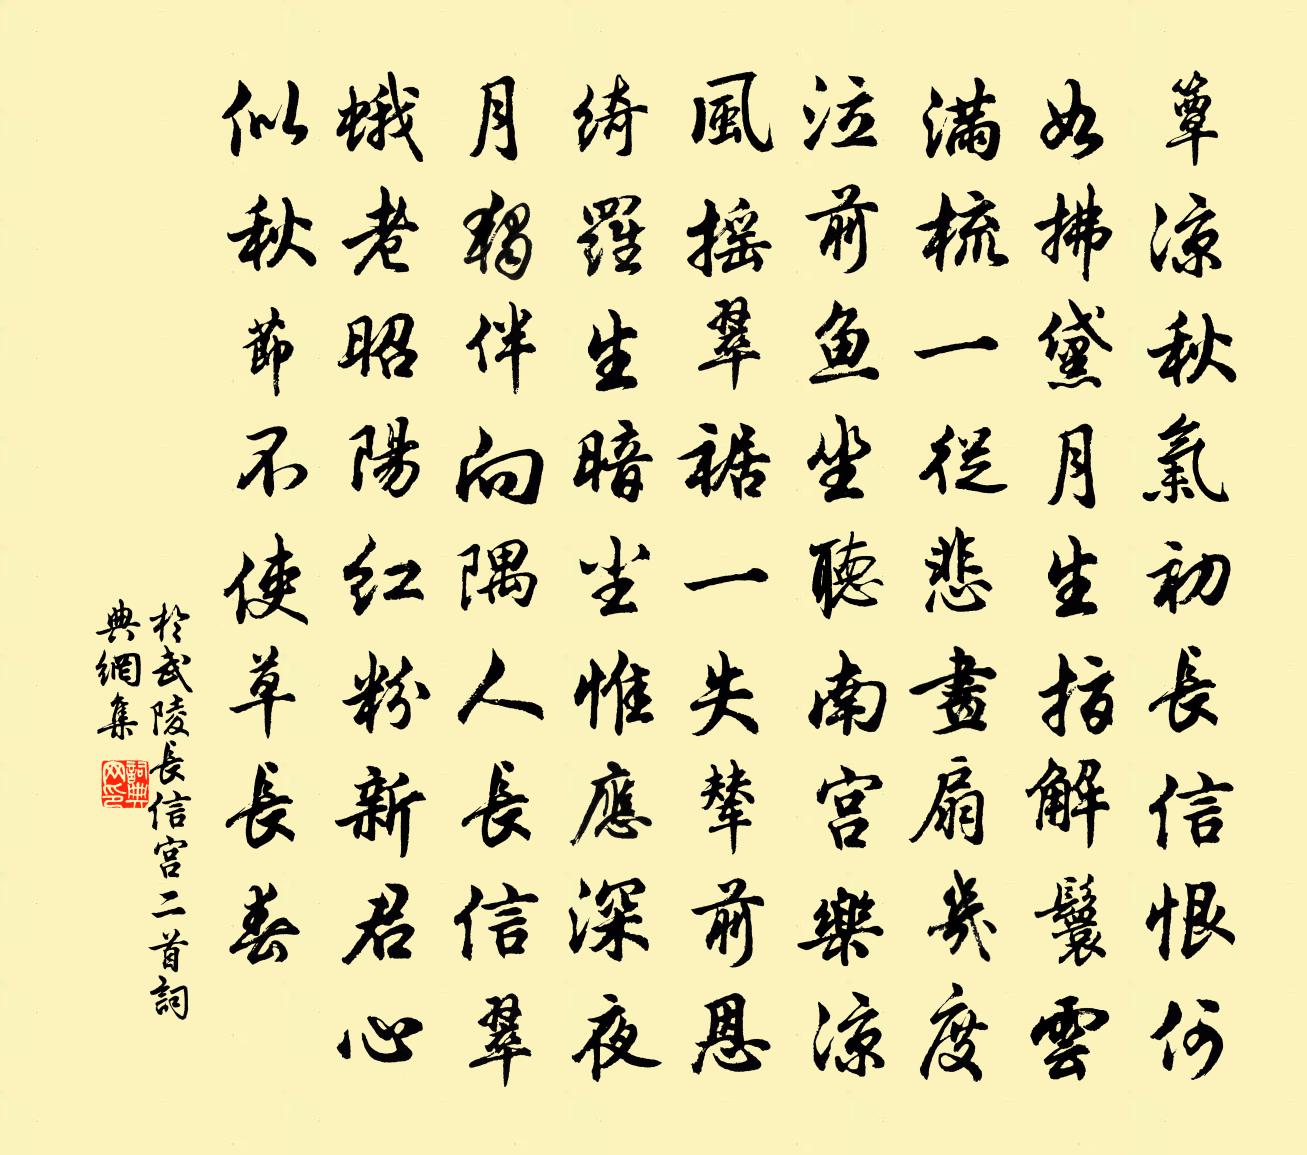 簟涼秋氣初長信恨何
如拂黛月生指解鬟雲
滿梳一從悲畫扇幾度
泣前魚坐聽南宮樂涼
風搖翠裾一失輦前恩
綺羅生暗塵惟應深夜
月獨伴向隅人長信翠
蛾老昭陽紅粉新君心
似秋節不使草長春
於武陵長信宮二首詞
典網集
詞典
网印